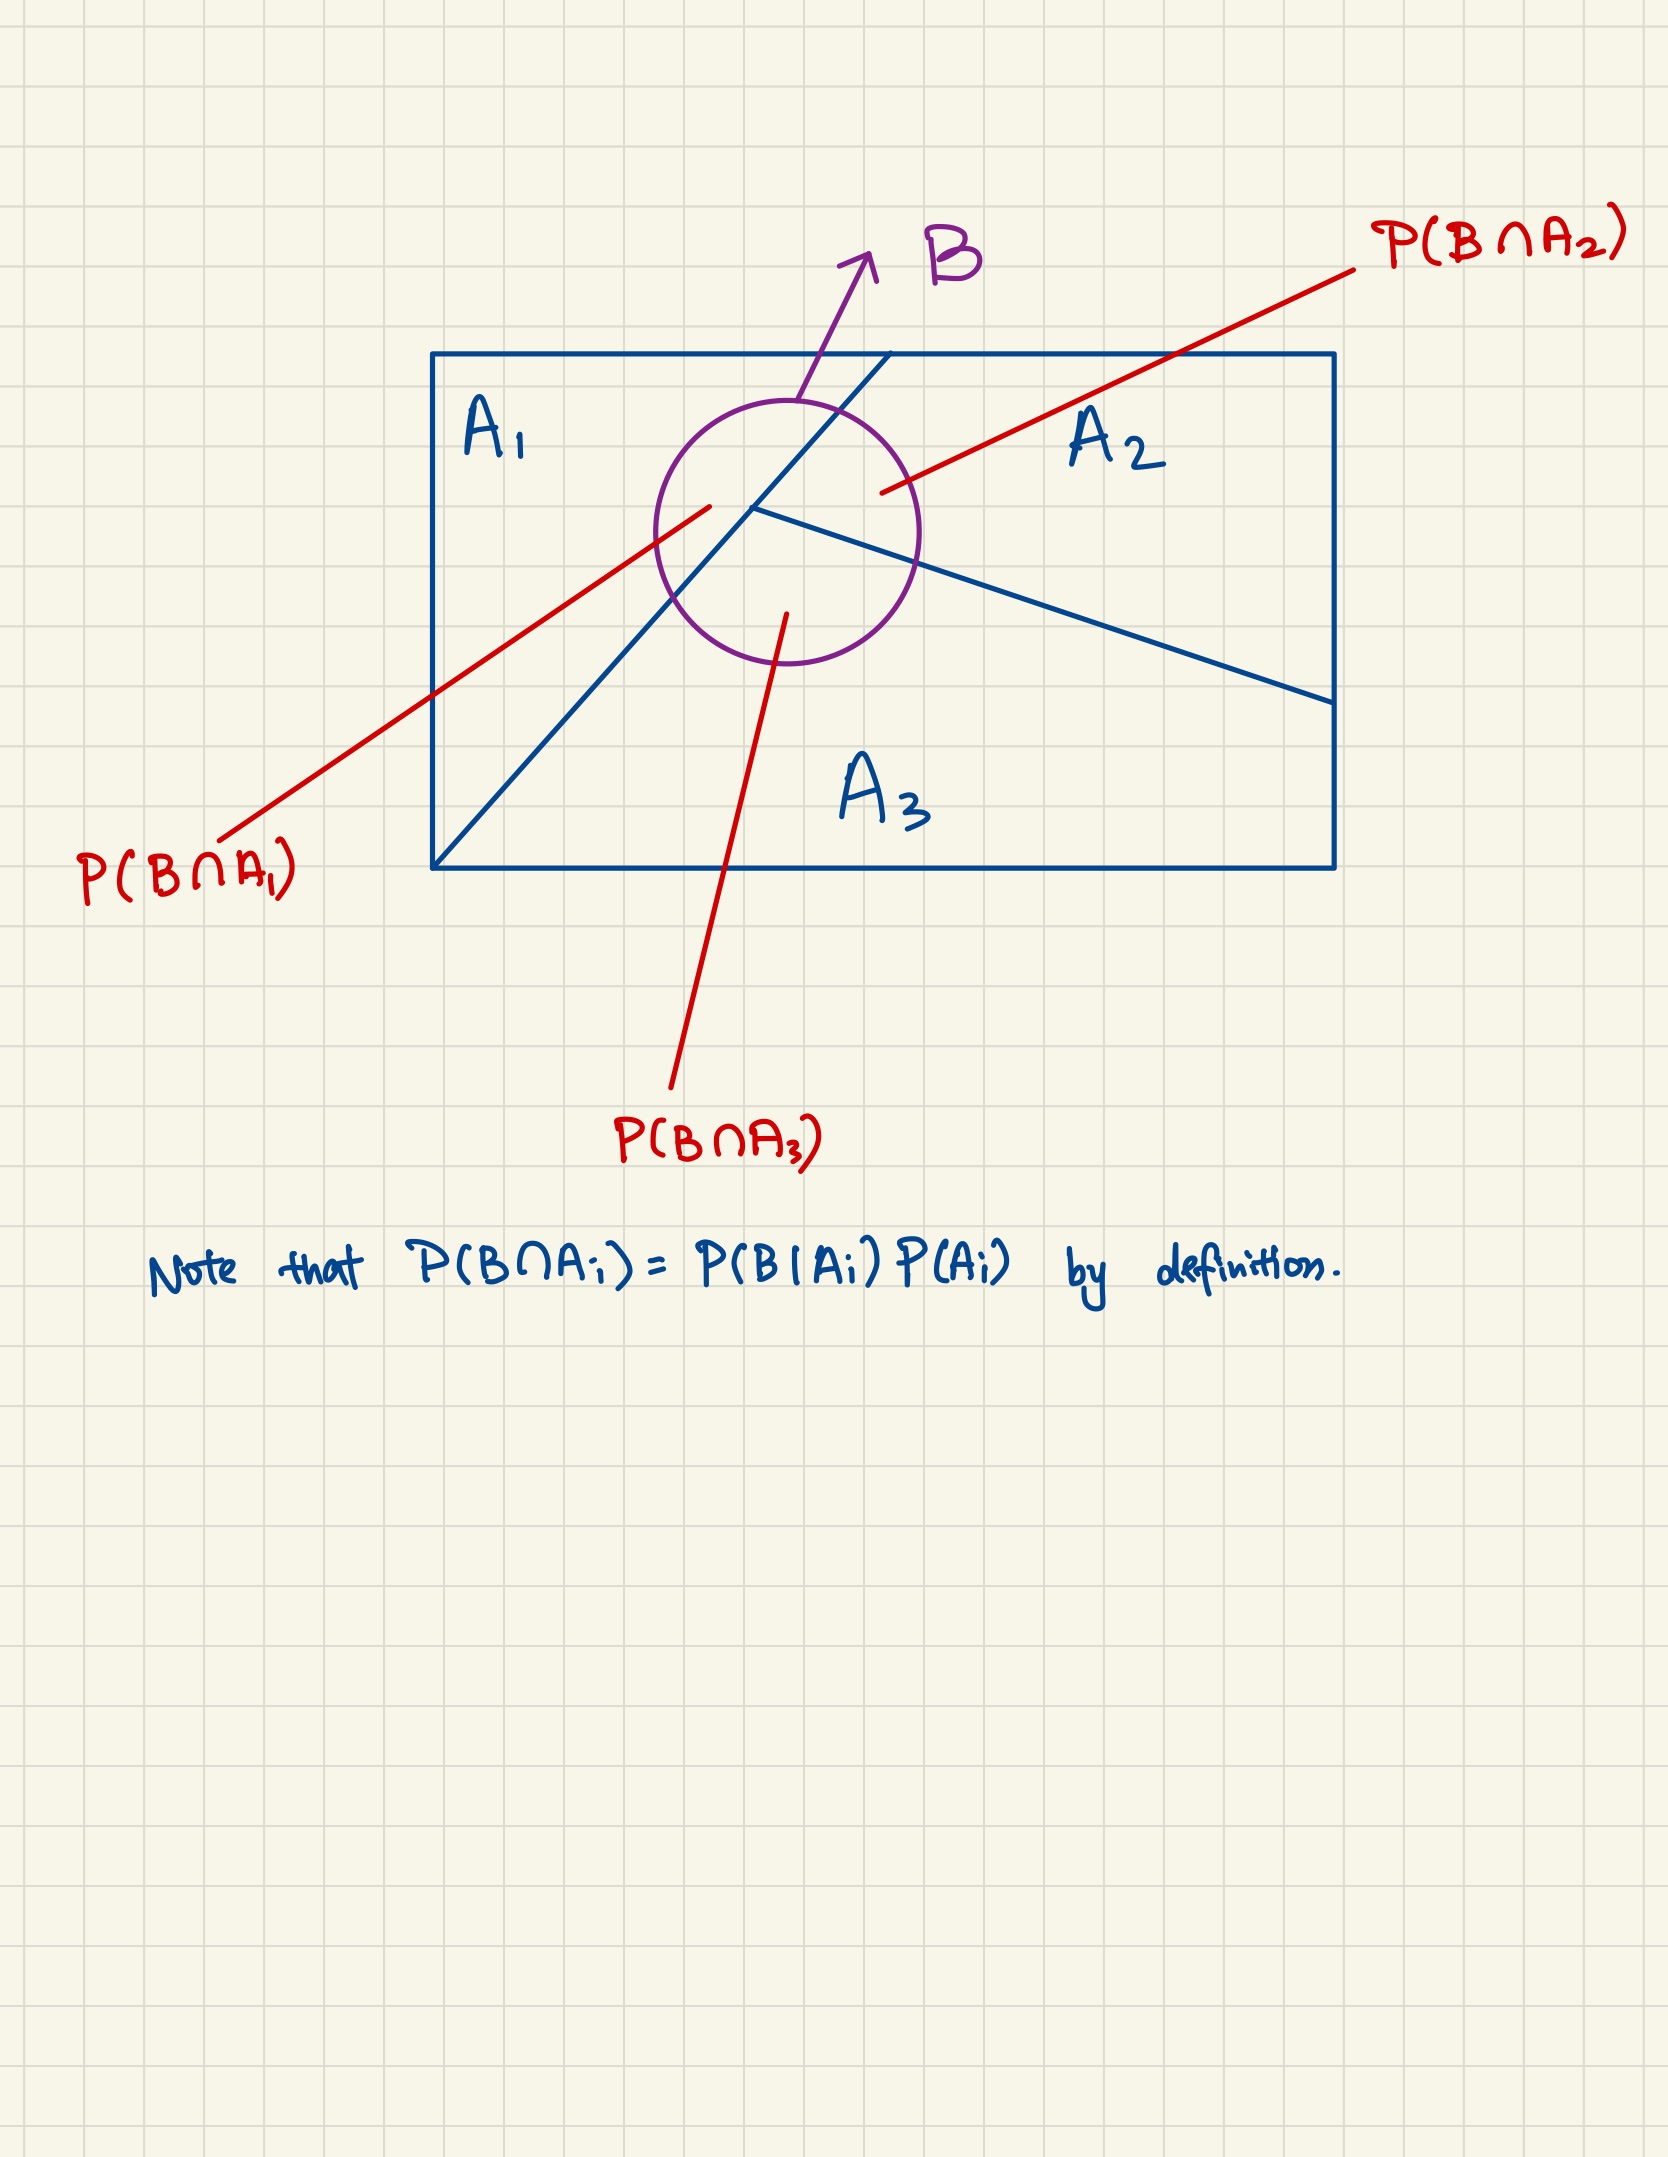 B
P(B∩A₂)
A₁
A₂
A₃
P(B∩A₁)
P(B∩A₃)
Note that P(B∩Aᵢ) = P(B|Aᵢ) P(Aᵢ) by definition.